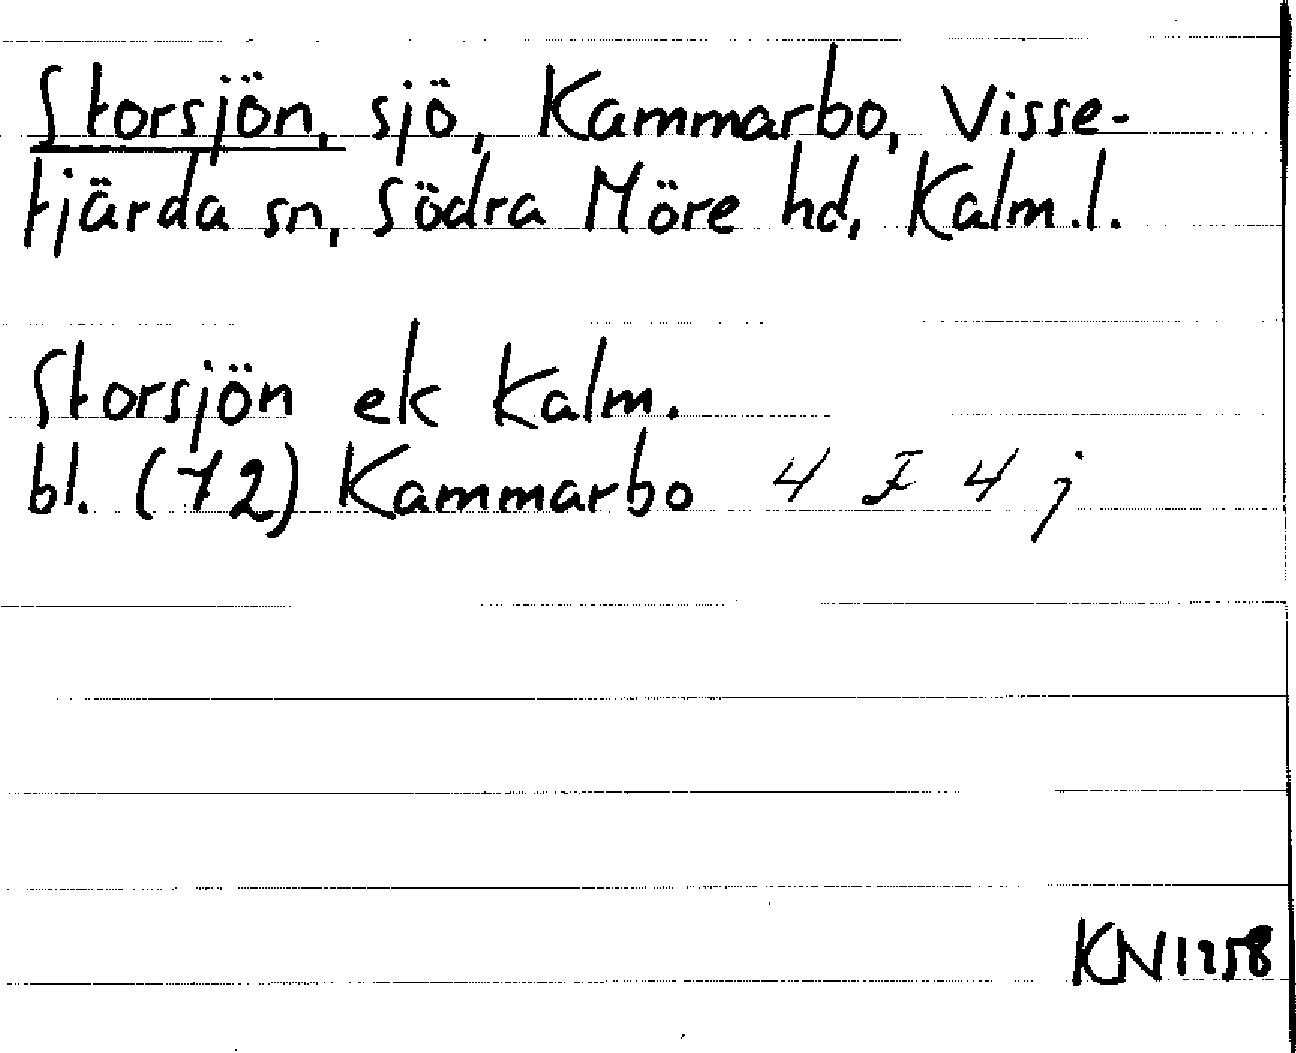 Storsjön, sjö, Kammarbo, Visse-
fjärda sn, Södra Möre hd, Kalm.l.
Storsjön ek Kalm.
bl. (72) Kammarbo 4 F 4 j